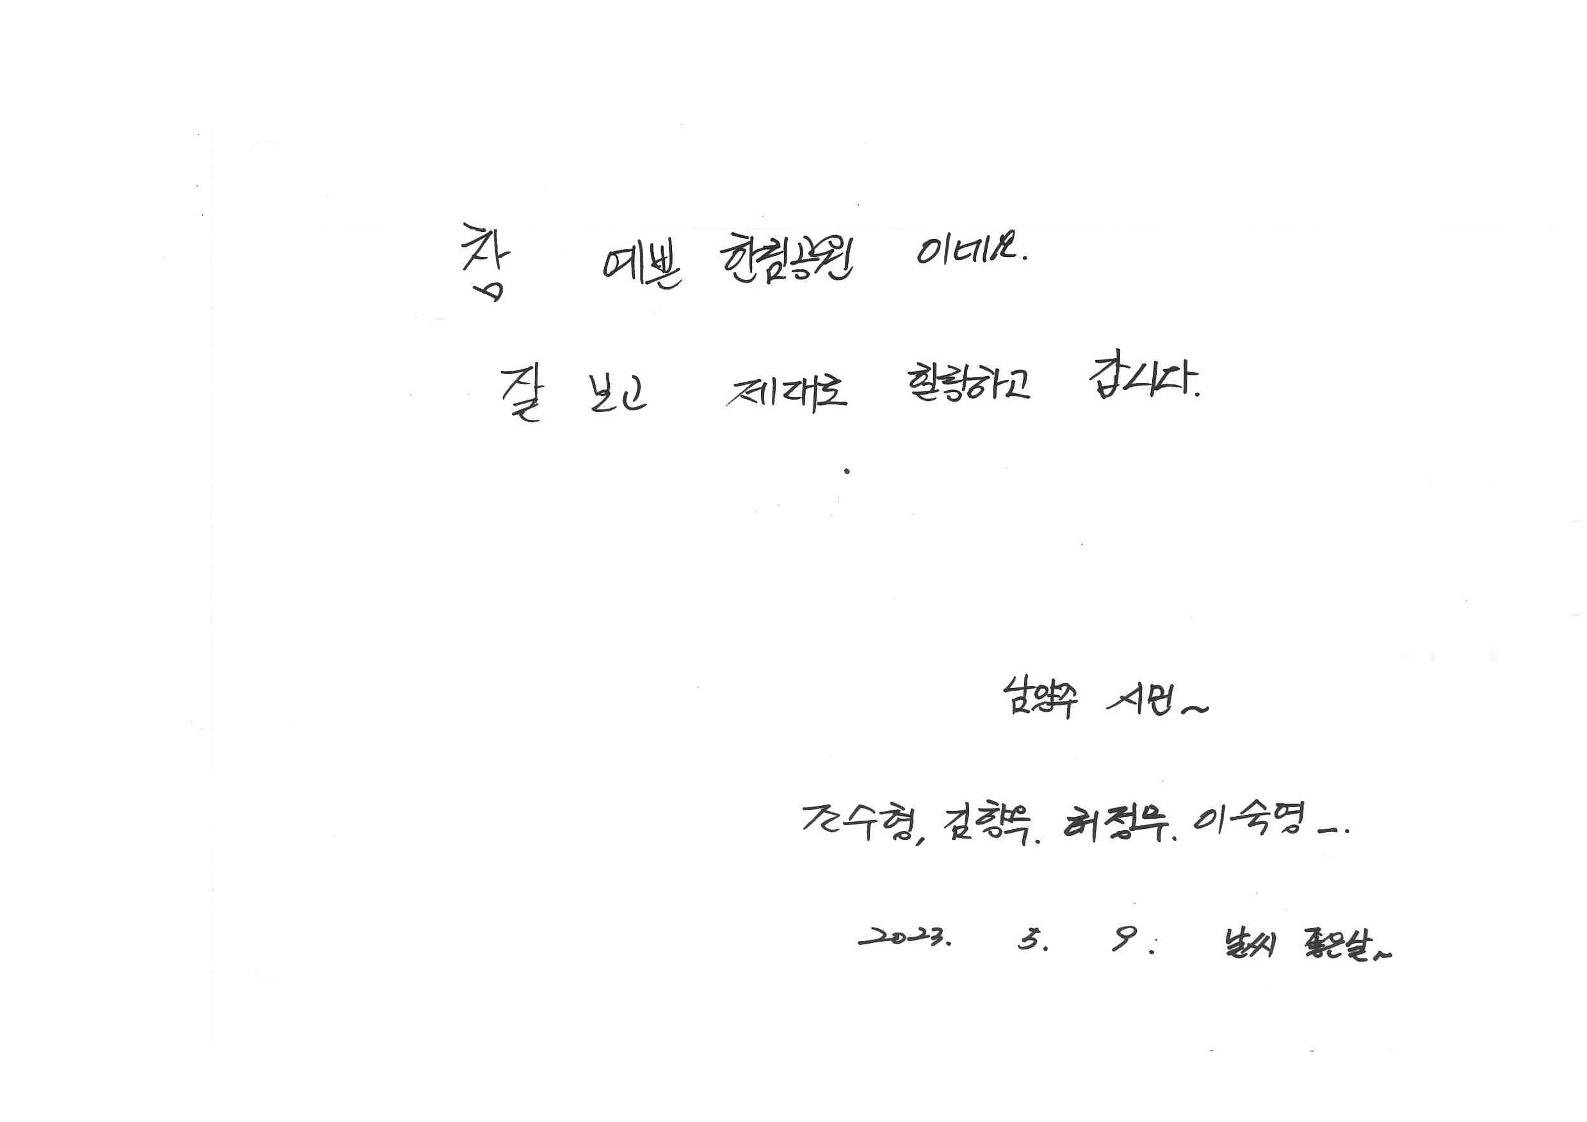 참 예쁜 한림공원 이네요.
잘 보고 제대로 힐링하고 갑시다.
남양주 시민~
조수형, 김향옥. 허정무. 이숙영 -.
2023. 5. 9. 날씨 좋은날~